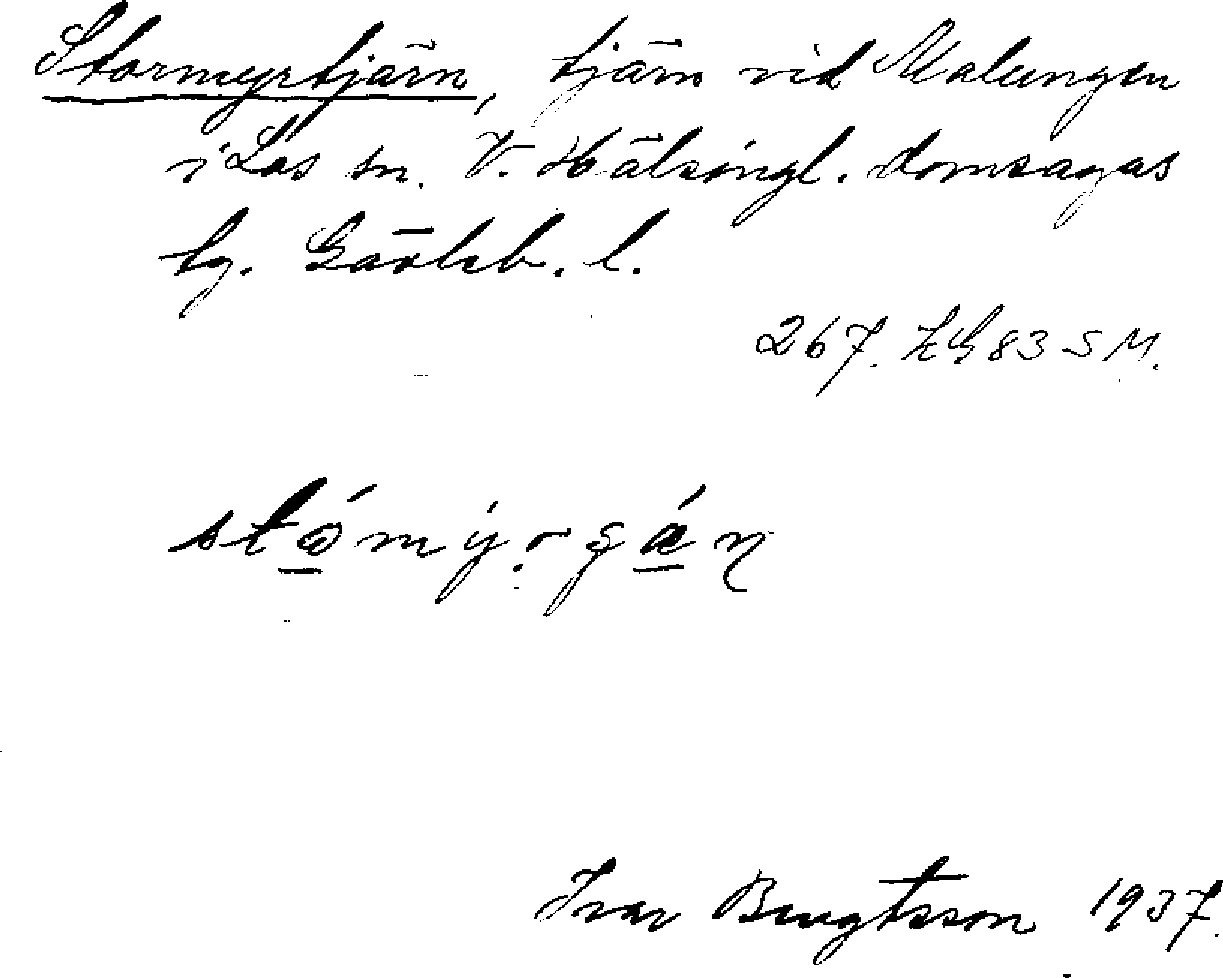 Stormyrtjärn, tjärn vid Malungen
i Los sn. V. Hälsingl. domsagas
tg. Gävleb. l.
267. KG 83 SM.
Ivar Bengtsson 1937.